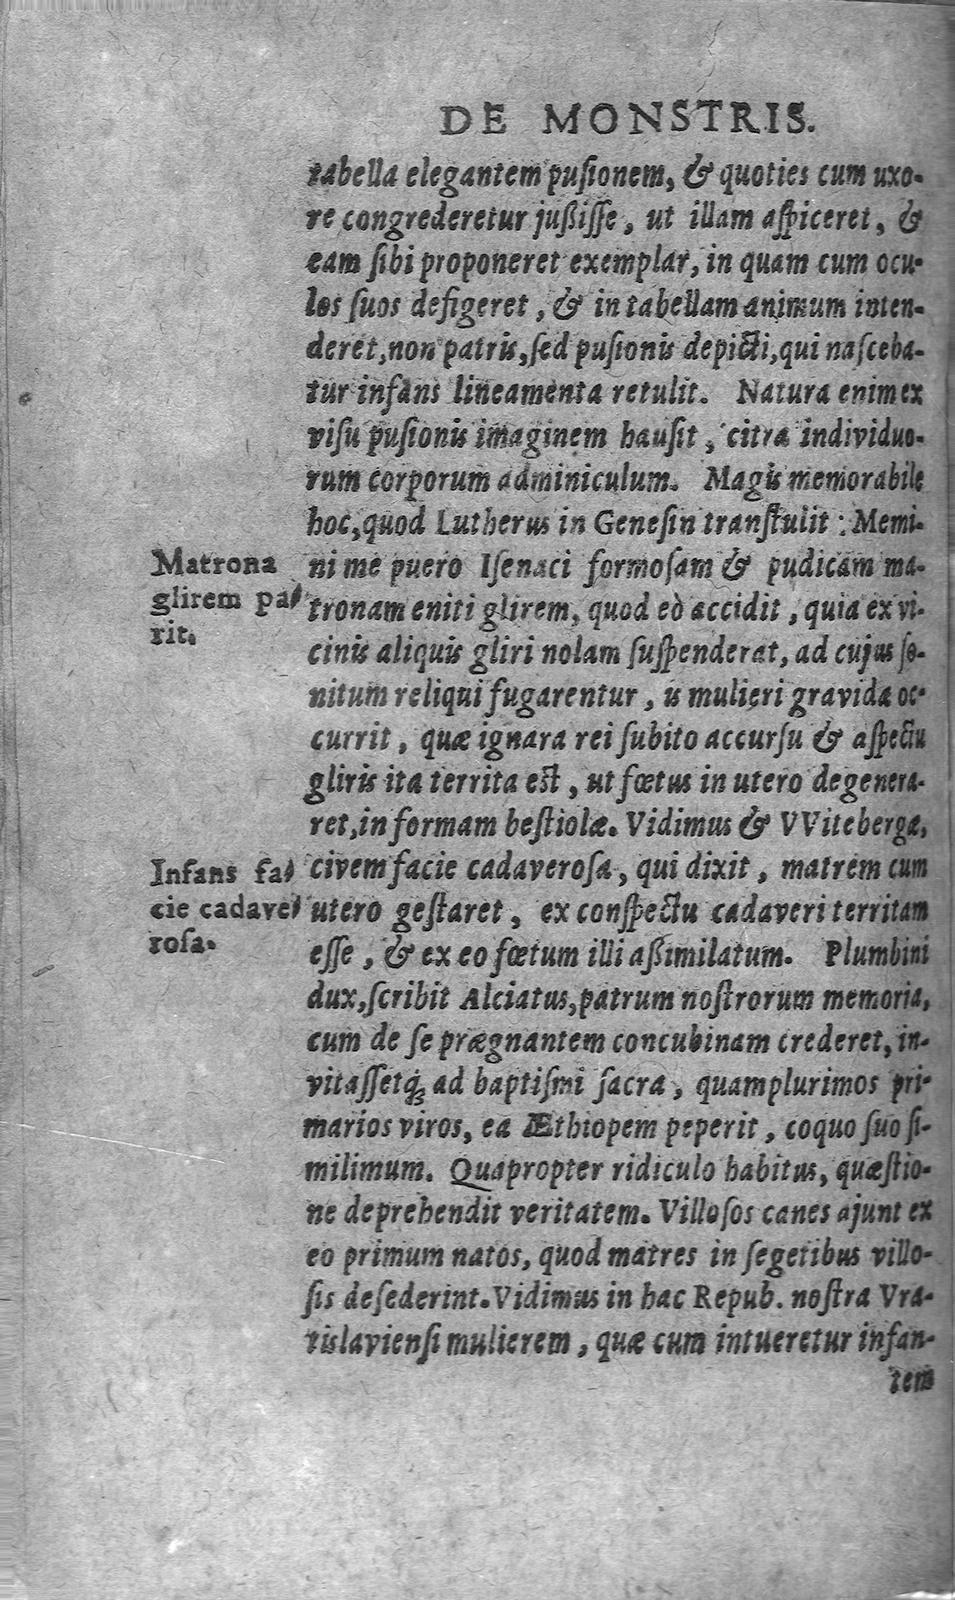 DE MONSTRIS.
tabella elegantem puſionem, & quoties cum uxo-
re congrederetur jußiſſe, ut illam aſpiceret, &
eam ſibi proponeret exemplar, in quam cum ocu-
los ſuos defigeret, & in tabellam animum inten-
deret, non patris, ſed puſionis depicti, qui naſceba-
tur infans lineamenta retulit. Natura enim ex
viſu puſionis imaginem hauſit, citra individuo-
rum corporum adminiculum. Magis memorabile
hoc, quod Lutherus in Geneſin tranſtulit: Memi-
Matrona
glirem pa-
rit.
ni me puero Iſenaci formoſam & pudicam ma-
tronam eniti glirem, quod eò accidit, quia ex vi-
cinis aliquis gliri nolam ſuſpenderat, ad cujus ſo-
nitum reliqui fugarentur, is mulieri gravidæ oc-
currit, quæ ignara rei ſubito accurſu & aſpectu
gliris ita territa est, ut fœtus in utero degenera-
ret, in formam beſtiolæ. Vidimus & VVitebergæ,
Infans fa-
cie cadave-
roſa.
civem facie cadaveroſa, qui dixit, matrem cum
utero geſtaret, ex conſpectu cadaveri territam
eſſe, & ex eo fœtum illi aßimilatum. Plumbini
dux, ſcribit Alciatus, patrum noſtrorum memoria,
cum de ſe prægnantem concubinam crederet, in-
vitaſſetq́; ad baptiſmi ſacra, quamplurimos pri-
marios viros, ea Æthiopem peperit, coquo ſuo ſi-
milimum. Quapropter ridiculo habitus, quæſtio-
ne deprehendit veritatem. Villoſos canes ajunt ex
eo primum natos, quod matres in ſegetibus villo-
ſis deſederint. Vidimus in hac Repub. noſtra Vra-
tislavienſi mulierem, quæ cum intueretur infan-
tem